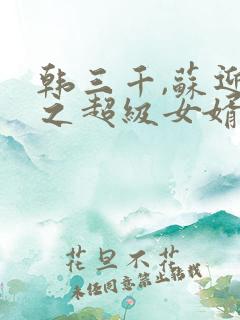 韩三千,苏迎
之超级女婿
花旦不花
未经同意禁止转载